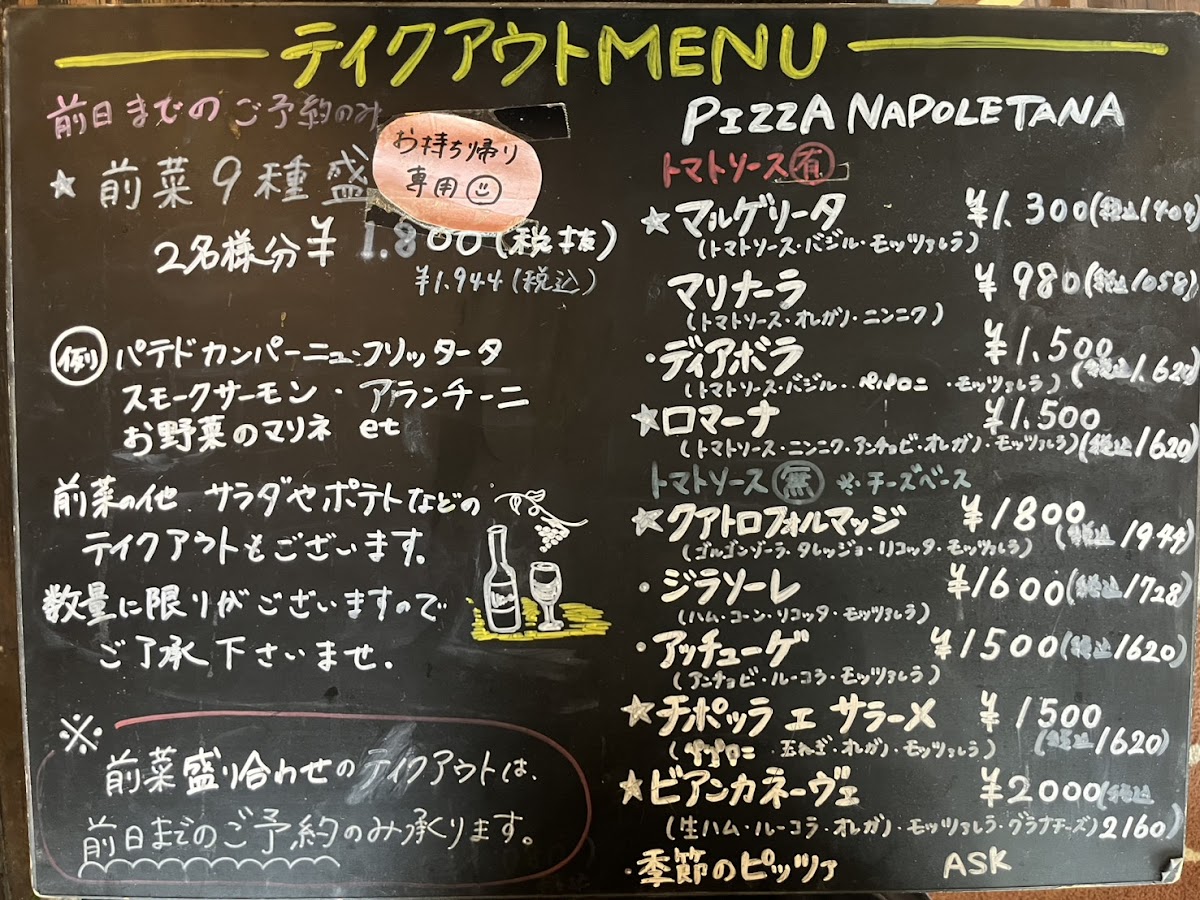 テイクアウトMENU
前日までのご予約のみ
お持ち帰り
専用
★ 前菜9種盛
2名様分 ¥1.800(税抜)
¥1.944(税込)
例 パテドカンパーニュ・フリッタータ
スモークサーモン・アランチーニ
お野菜のマリネ et
前菜の他 サラダやポテトなどの
テイクアウトもございます。
数量に限りがございますので
ご了承下さいませ.
※
前菜盛り合わせのテイクアウトは、
前日までのご予約のみ承ります。
PIZZA NAPOLETANA
トマトソース 有
★マルゲリータ ¥1.300(税込1404)
(トマトソース・バジル・モッツァレラ)
マリナーラ ¥980(税込1058)
(トマトソース・オレガノ・ニンニク)
・ディアボラ ¥1.500(税込1.620)
(トマトソース・バジル・ペパロニ・モッツァレラ)
★ロマーナ ¥1.500
(トマトソース・ニンニク・アンチョビ・オレガノ・モッツァレラ)(税込1620)
トマトソース 無 ※チーズベース
★クアトロフォルマッジ ¥1800(税込1944)
(ゴルゴンゾーラ・タレッジョ・リコッタ・モッツァレラ)
・ジラソーレ ¥1600(税込1728)
(ハム・コーン・リコッタ・モッツァレラ)
・アッチューゲ ¥1500(税込1620)
(アンチョビ・ルーコラ・モッツァレラ)
★チポッラ エ サラーメ ¥1500
(ペパロニ 玉ねぎ・オレガノ・モッツァレラ) (税込1620)
★ビアンカネーヴェ ¥2000(税込
(生ハム・ルーコラ・オレガノ・モッツァレラ・グラナチーズ) 2160)
・季節のピッツァ ASK